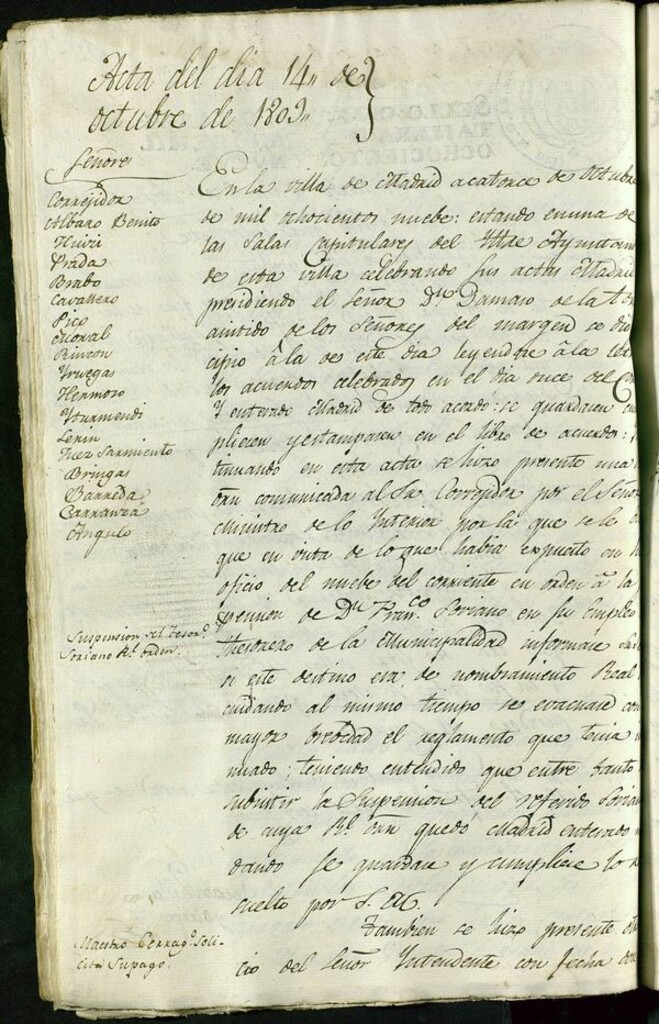 Acta del dia 14,, de
octubre de 1809,,
Señores
Correjidor
Albaro Benito
Prada
Brabo
Cavallero
Pico
Moral
Rincon
Yruegas
Hermoso
Yturmendi
Lerin
Juez Sarmiento
Bringas
Barreda
Carranza
Angulo
En la villa de Madrid a catorce de Octubre
de mil ochocientos nuebe: estando en una de
las Salas Capitulares del Ittre Ayuntam
de esta villa celebrando sus actas Madrid
presidiendo el Señor Dn. Damaso de la Tor
asistido de los Señores del margen se dio
cipio à la de este dia leyendose à la let
los acuerdos celebrados en el dia once del Co
Y enterado Madrid de todo acordó: se guardasen cu
pliesen y estamparen en el libro de acuerdos:
tinuando en esta acta se hizo presente una
orn comunicada al Sr. Corregidor por el Señor
Ministro de lo Interior por la que se le
que en vista de lo que habia expuesto en
oficio del nuebe del corriente en orden à la
pension de Dn. Franco. Soriano en su empleo
Thesorero de la Municipalidad informase
si este destino era de nombramiento Real
cuidando al mismo tiempo se evacuase con
mayor brebedad el reglamento que tenia
nuado; teniendo entendido que entre tanto
subsistir la Suspension del referido Soria
de cuya Rl. orn quedó Madrid enterado
dando se guardase y cumpliese lo
suelto por S. M.
Suspension del Tesoro.
Soriano Rl. orden.
Tambien se hizo presente
cio del Señor Yntendente con fecha
Maestro Perrago. Soli-
cita Supago.